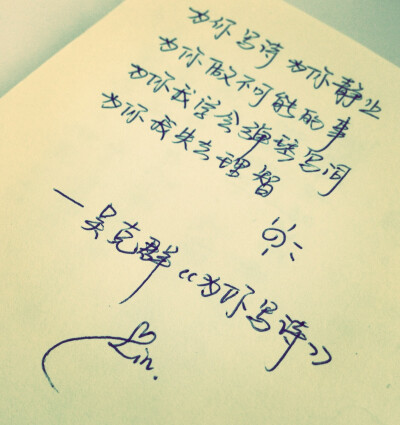 为你写诗 为你静止
为你做不可能的事
为你我学会弹琴写词
为你我失去理智
—吴克群《为你写诗》
Lin.